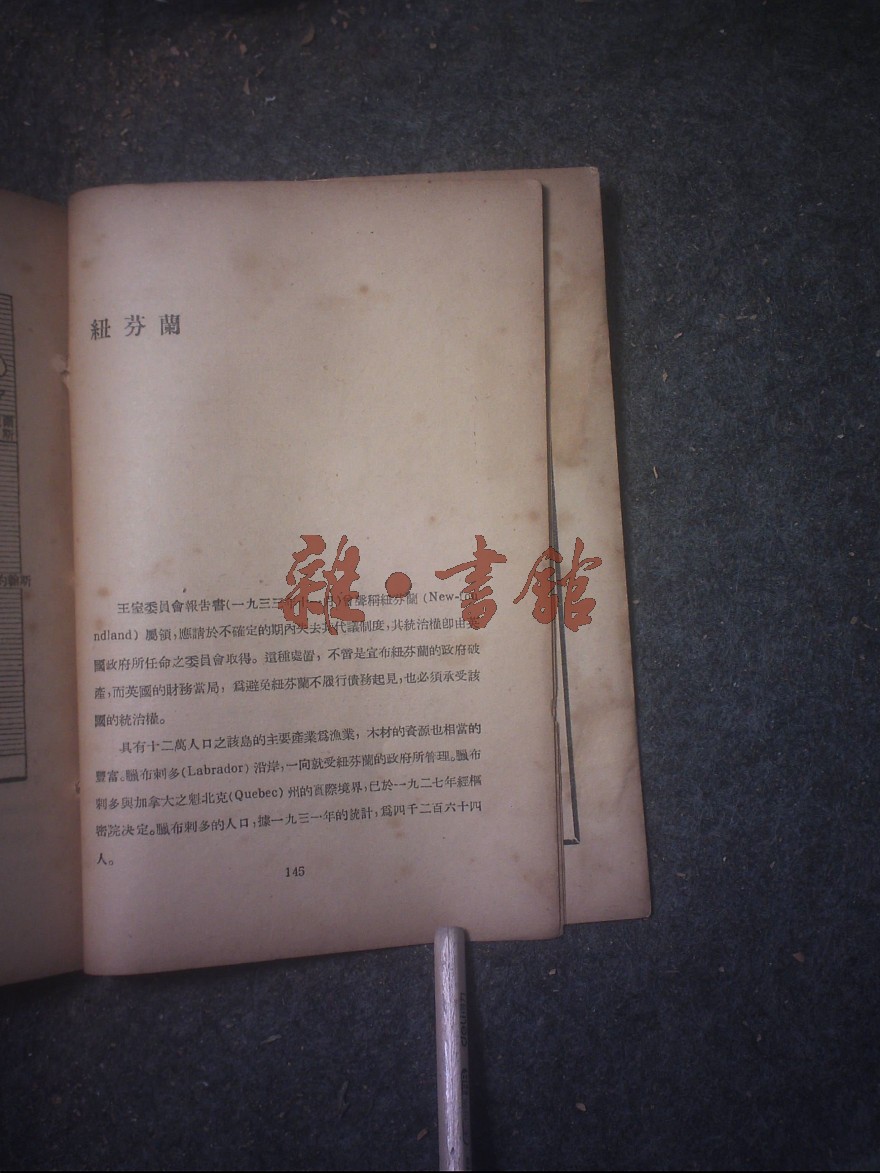 紐芬蘭
雜·書館
王室委員會報告書(一九三三年十一月)曾聲稱紐芬蘭 (New-fou
ndland) 屬領,應請於不確定的期內失去其代議制度,其統治權卽由英
國政府所任命之委員會取得。這種處置,不啻是宣布紐芬蘭的政府破
產,而英國的財務當局,爲避免紐芬蘭不履行債務起見,也必須承受該
國的統治權。
具有十二萬人口之該島的主要產業爲漁業,木材的資源也相當的
豐富。臘布剌多(Labrador) 沿岸,一向就受紐芬蘭的政府所管理。臘布
剌多與加拿大之魁北克(Quebec) 州的眞際境界,已於一九二七年經樞
密院决定。臘布剌多的人口,據一九三一年的統計,爲四千二百六十四
人。
145